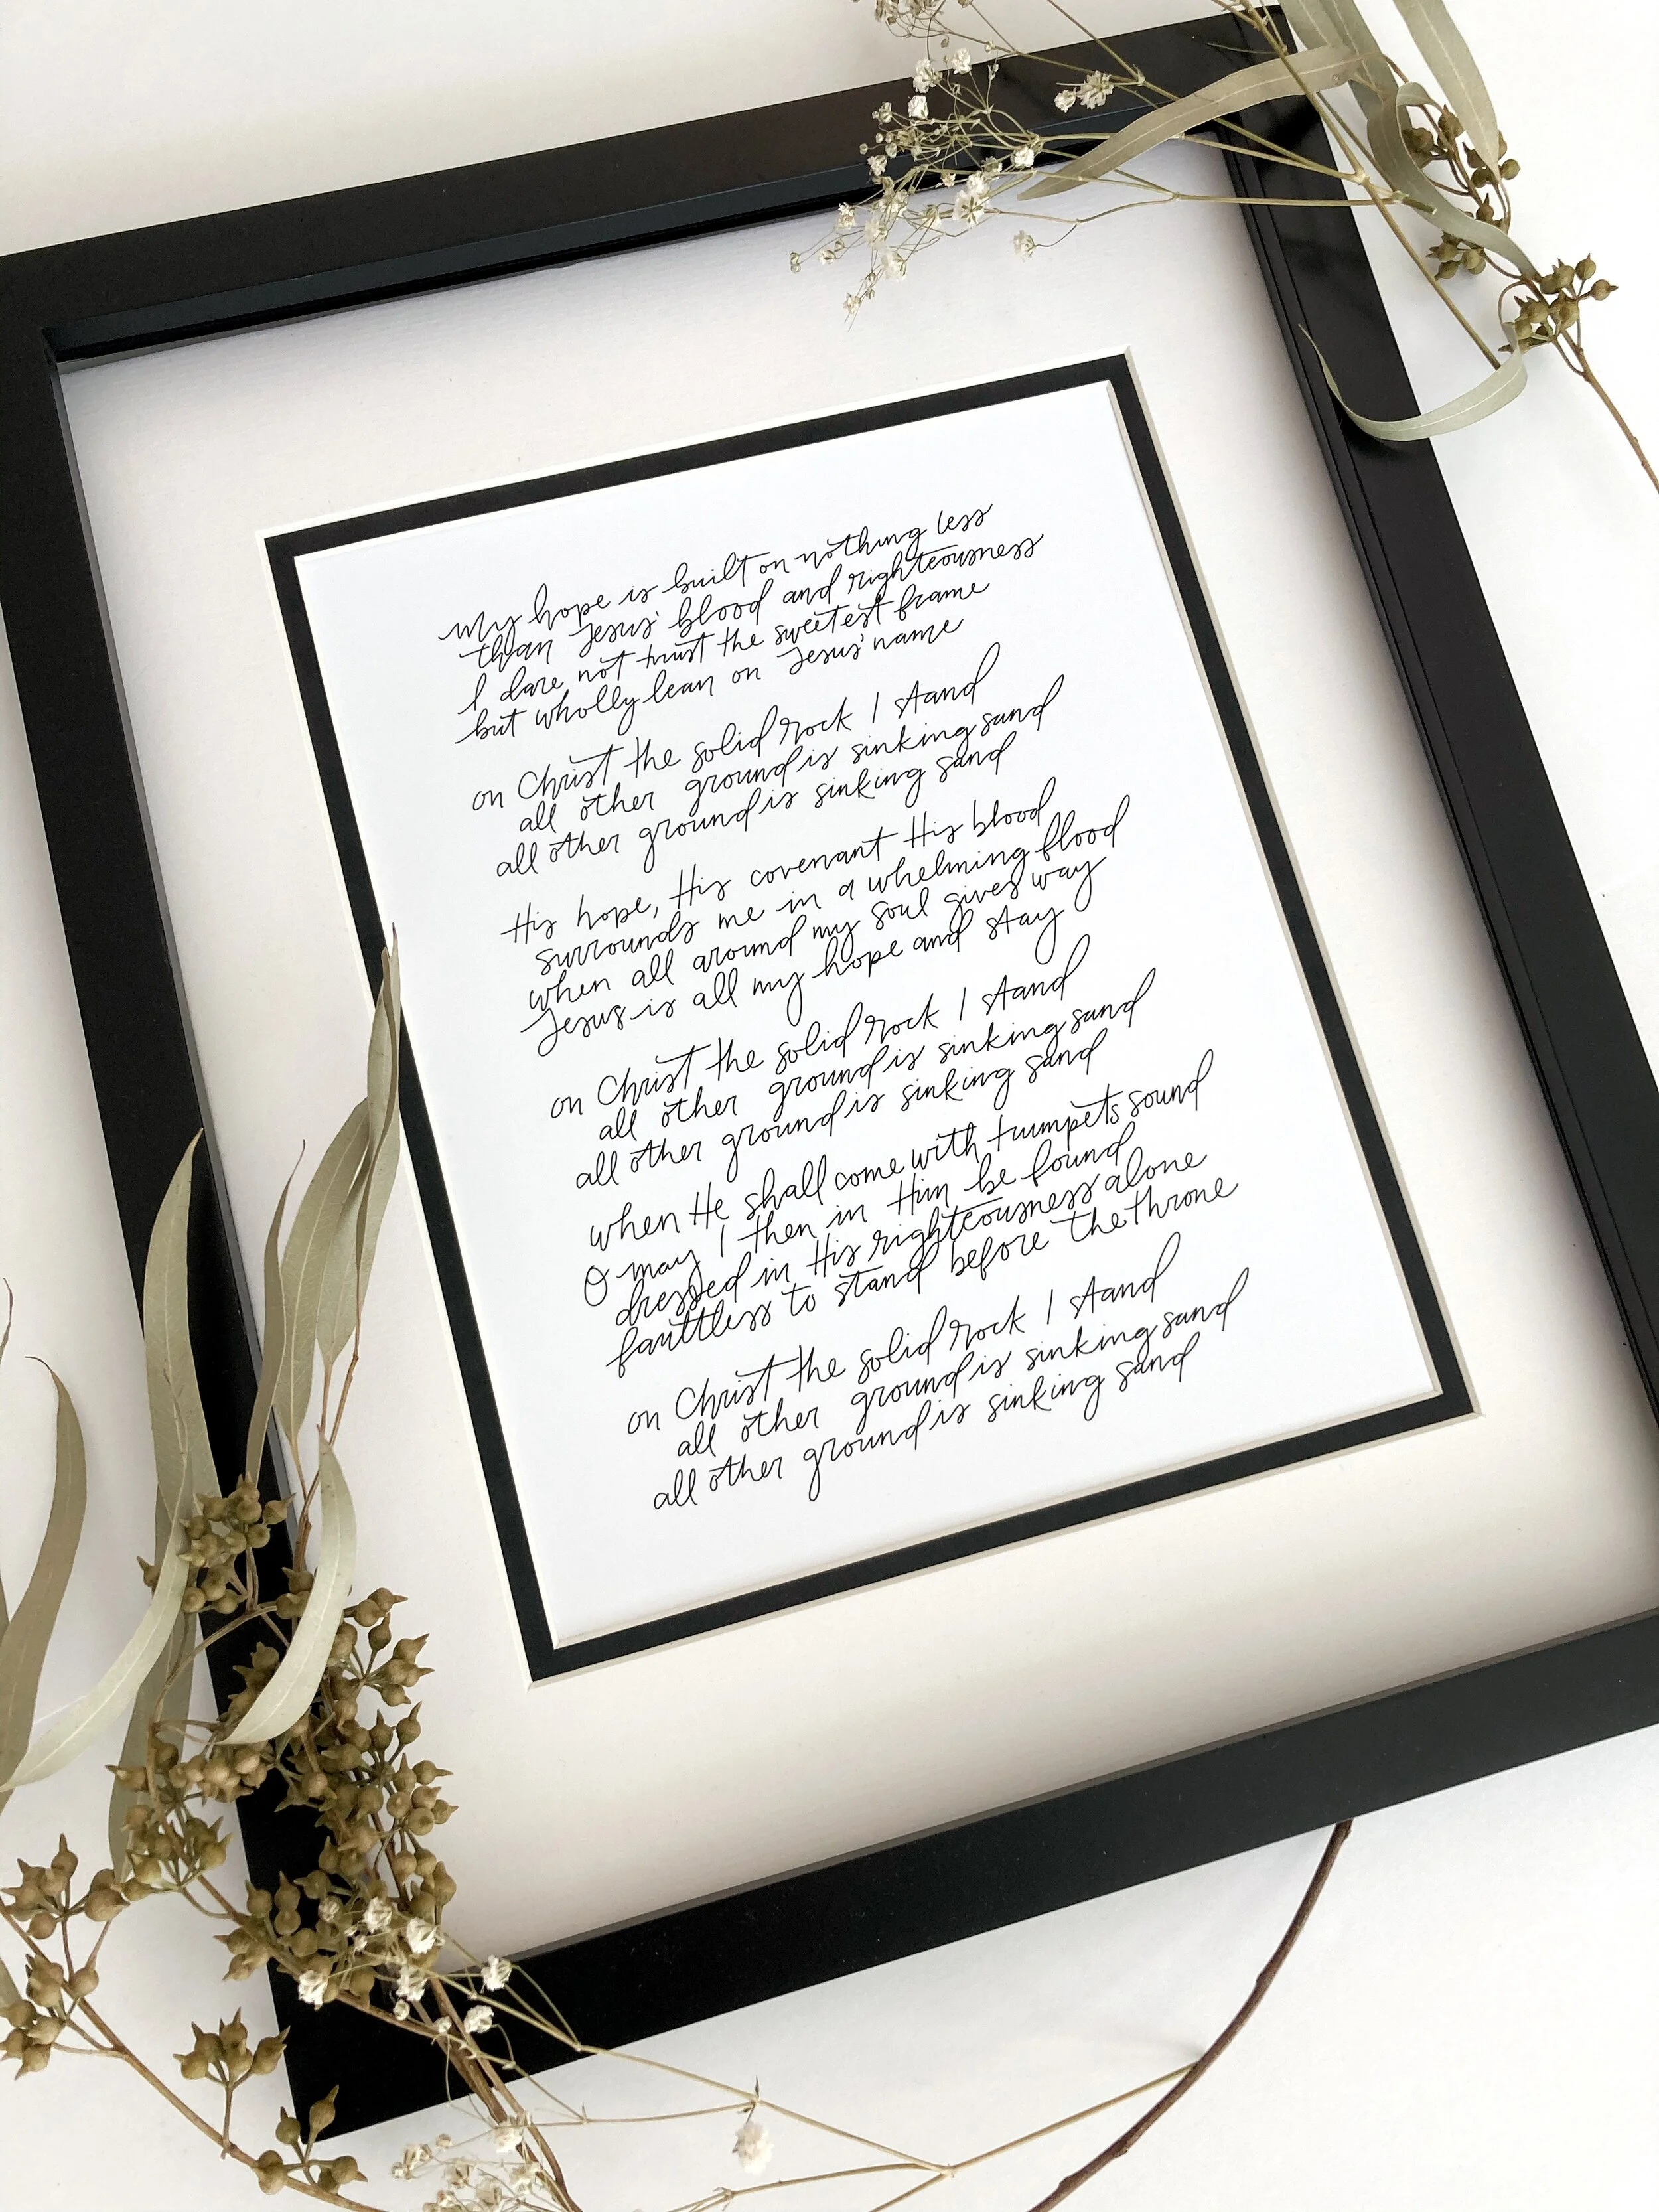 my hope is built on nothing less
than Jesus' blood and righteousness
I dare not trust the sweetest frame
but wholly lean on Jesus' name
on Christ the solid rock I stand
all other ground is sinking sand
all other ground is sinking sand
His hope, His covenant His blood
surrounds me in a whelming flood
when all around my soul gives way
Jesus is all my hope and stay
on Christ the solid rock I stand
all other ground is sinking sand
all other ground is sinking sand
when He shall come with trumpets sound
O may I then in Him be found
dressed in His righteousness alone
faultless to stand before the throne
on Christ the solid rock I stand
all other ground is sinking sand
all other ground is sinking sand